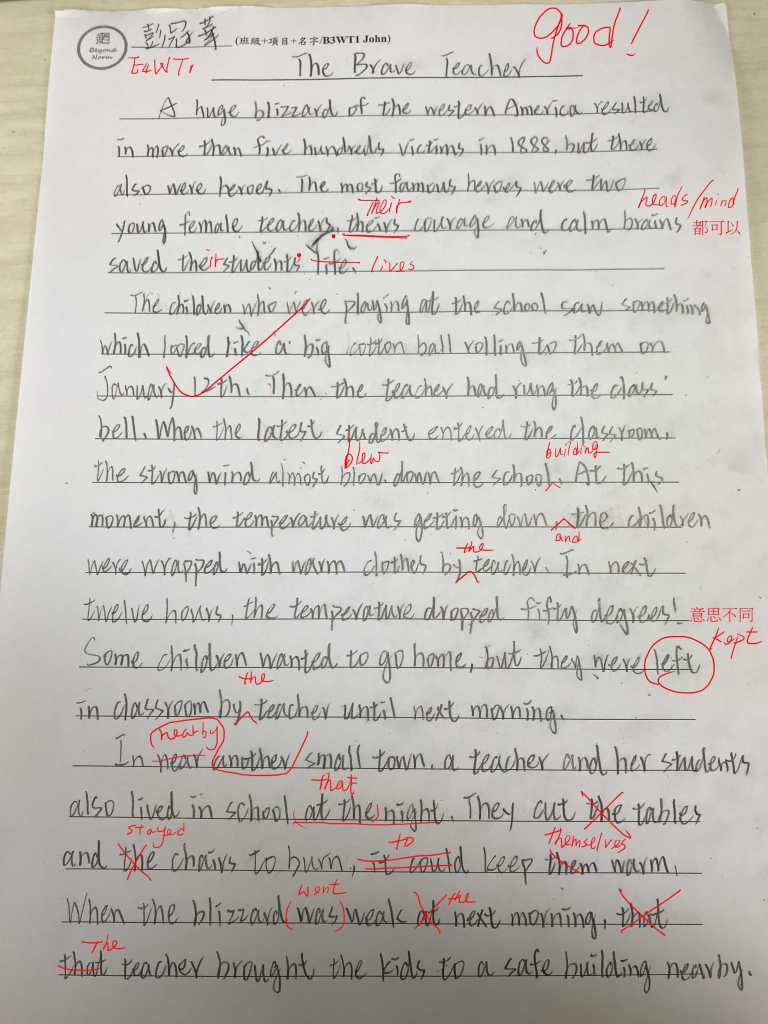 Beyond Norm
彭冠華 (班級+項目+名字/B3WT1 John)
good!
E4WT1
The Brave Teacher
A huge blizzard of the western America resulted
in more than five hundreds victims in 1888, but there
also were heroes. The most famous heroes were two
Their heads/mind
young female teachers, theirs courage and calm brains 都可以
saved their students' life. lives
The children who were playing at the school saw something
which looked like a big cotton ball rolling to them on
January 12th. Then the teacher had rung the class'
bell. When the latest student entered the classroom,
blew building
the strong wind almost blow down the school. At this
moment, the temperature was getting down the children
and
the
were wrapped with warm clothes by teacher. In next
twelve hours, the temperature dropped fifty degrees! 意思不同
kept
Some children wanted to go home, but they were left
the
in classroom by teacher until next morning.
nearby
In near another small town, a teacher and her students
that
also lived in school at the night. They cut the tables
stayed to themselves
and the chairs to burn, it could keep them warm.
went the
When the blizzard (was) weak at next morning, that
The
that teacher brought the kids to a safe building nearby.